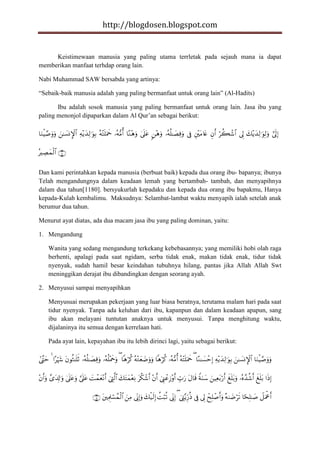 http://blogdosen.blogspot.com
Keistimewaan manusia yang paling utama terrletak pada sejauh mana ia dapat
memberikan manfaat terhdap orang lain.
Nabi Muhammad SAW bersabda yang artinya:
“Sebaik-baik manusia adalah yang paling bermanfaat untuk orang lain” (Al-Hadits)
Ibu adalah sosok manusia yang paling bermanfaat untuk orang lain. Jasa ibu yang
paling menonjol dipaparkan dalam Al Qur’an sebagai berikut:
وَوَصَّيْنَا الْإِنسَانَ بِوَالِدَيْهِ حَمَلَتْهُ أُمُّهُ وَهْنًا عَلَىٰ وَهْنٍ وَفِصَالُهُ فِي عَامَيْنِ أَنِ اشْكُرْ لِي وَلِوَالِدَيْكَ إِلَيَّ
الْمَصِيرُ ﴿١٤﴾
Dan kami perintahkan kepada manusia (berbuat baik) kepada dua orang ibu- bapanya; ibunya
Telah mengandungnya dalam keadaan lemah yang bertambah- tambah, dan menyapihnya
dalam dua tahun[1180]. bersyukurlah kepadaku dan kepada dua orang ibu bapakmu, Hanya
kepada-Kulah kembalimu. Maksudnya: Selambat-lambat waktu menyapih ialah setelah anak
berumur dua tahun.
Menurut ayat diatas, ada dua macam jasa ibu yang paling dominan, yaitu:
1. Mengandung
Wanita yang sedang mengandung terkekang kebebasannya; yang memiliki hobi olah raga
berhenti, apalagi pada saat ngidam, serba tidak enak, makan tidak enak, tidur tidak
nyenyak, sudah hamil besar keindahan tubuhnya hilang, pantas jika Allah Allah Swt
meninggikan derajat ibu dibandingkan dengan seorang ayah.
2. Menyusui sampai menyapihkan
Menyusuai merupakan pekerjaan yang luar biasa beratnya, terutama malam hari pada saat
tidur nyenyak. Tanpa ada keluhan dari ibu, kapanpun dan dalam keadaan apapun, sang
ibu akan melayani tuntutan anaknya untuk menyusui. Tanpa menghitung waktu,
dijalaninya itu semua dengan kerrelaan hati.
Pada ayat lain, kepayahan ibu itu lebih dirinci lagi, yaitu sebagai berikut:
وَوَصَّيْنَا الْإِنسَانَ بِوَالِدَيْهِ إِحْسَانًا حَمَلَتْهُ أُمُّهُ كُرْهًا وَوَضَعَتْهُ كُرْهًا وَحَمْلُهُ وَفِصَالُهُ ثَلَاثُونَ شَهْرًا حَتَّىٰ
إِذَا بَلَغَ أَشُدَّهُ وَبَلَغَ أَرْبَعِينَ سَنَةً قَالَ رَبِّ أَوْزِعْنِي أَنْ أَشْكُرَ نِعْمَتَكَ الَّتِي أَنْعَمْتَ عَلَيَّ وَعَلَىٰ وَالِدَيَّ وَأَنْ
أَعْمَلَ صَالِحًا تَرْضَاهُ وَأَصْلِحْ لِي فِي ذُرِّيَّتِي إِنِّي تُبْتُ إِلَيْكَ وَإِنِّي مِنَ الْمُسْلِمِينَ ﴿١٥﴾